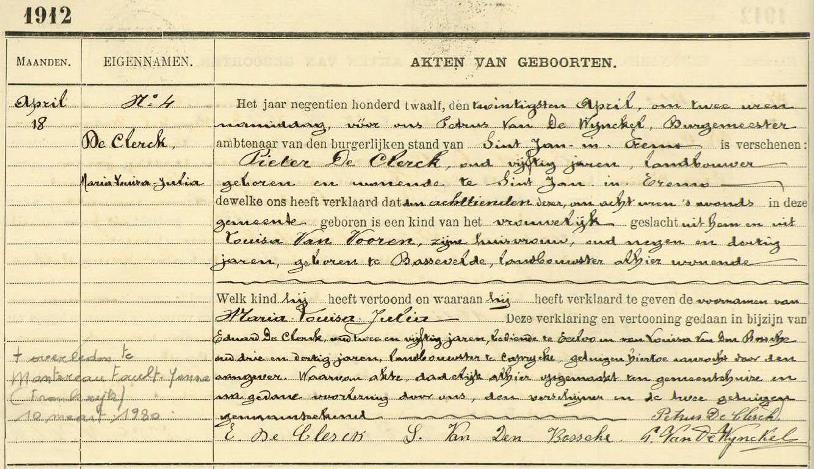 1912
MAANDEN. EIGENNAMEN. AKTEN VAN GEBOORTEN.
April
18
No 4
De Clerck,
Maria Louisa Julia
Het jaar negentien honderd twaalf, den twintigsten April, om twee uren
namiddag, vóór ons Petrus Van De Wynckel, Burgemeester
ambtenaar van den burgerlijken stand van Sint Jan in Eremo is verschenen:
Pieter De Clerck, oud vijftig jaren, landbouwer
geboren en wonende te Sint Jan in Eremo
dewelke ons heeft verklaard dat den achttienden dezer, om acht uren 's avonds in deze
gemeente geboren is een kind van het vrouwelijk geslacht uit hem en uit
Louisa Van Vooren, zijne huisvrouw, oud negen en dertig
jaren, geboren te Bassevelde, landbouwster alhier wonende
Welk kind hij heeft vertoond en waaraan hij heeft verklaard te geven de voornamen van
Maria Louisa Julia Deze verklaring en vertooning gedaan in bijzijn van
Eduard De Clerck, oud twee en vijftig jaren, bediende te Eecloo en van Louisa Van Den Bossche
oud drie en dertig jaren, landbouwster te Caprycke, getuigen hiertoe aanzocht door den
aangever. Waarvan akte, dadelijk alhier opgemaakt ten gemeentehuize en
na gedane voorlezing door ons, den verschijner en de twee getuigen
genaamteekend
Petrus De Clerck
E. De Clerck L. Van Den Bossche P. Van De Wynckel
+ overleden te
Montereau Fault-Yonne
(Frankrijk)
10 maart 1980